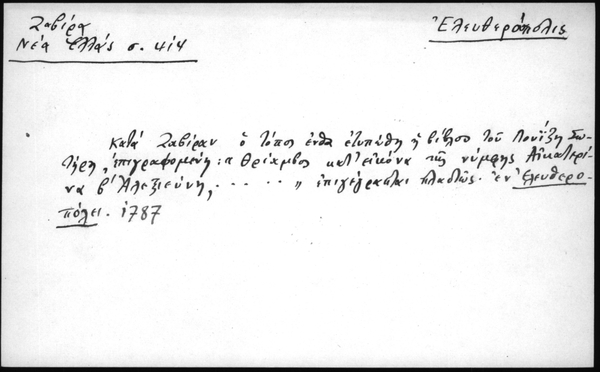 Ζαβίρα
Νέα Ἑλλάς σ. 414
Ἐλευθερόπολις
Κατά Ζαβίραν ὁ τόπος ἔνθα ἐτυπώθη ἡ βίβλος τοῦ Λουΐζη Σω-
τήρη, ἐπιγραφομένη: " Θρίαμβος κατ' εἰκόνα τῆς νύμφης Αἰκατερί-
να β' Ἀλεξιεύνη, . . . . . " ἐπιγέγραπται πλαστῶς. ἐν Ἐλευθερο-
πόλει. 1787